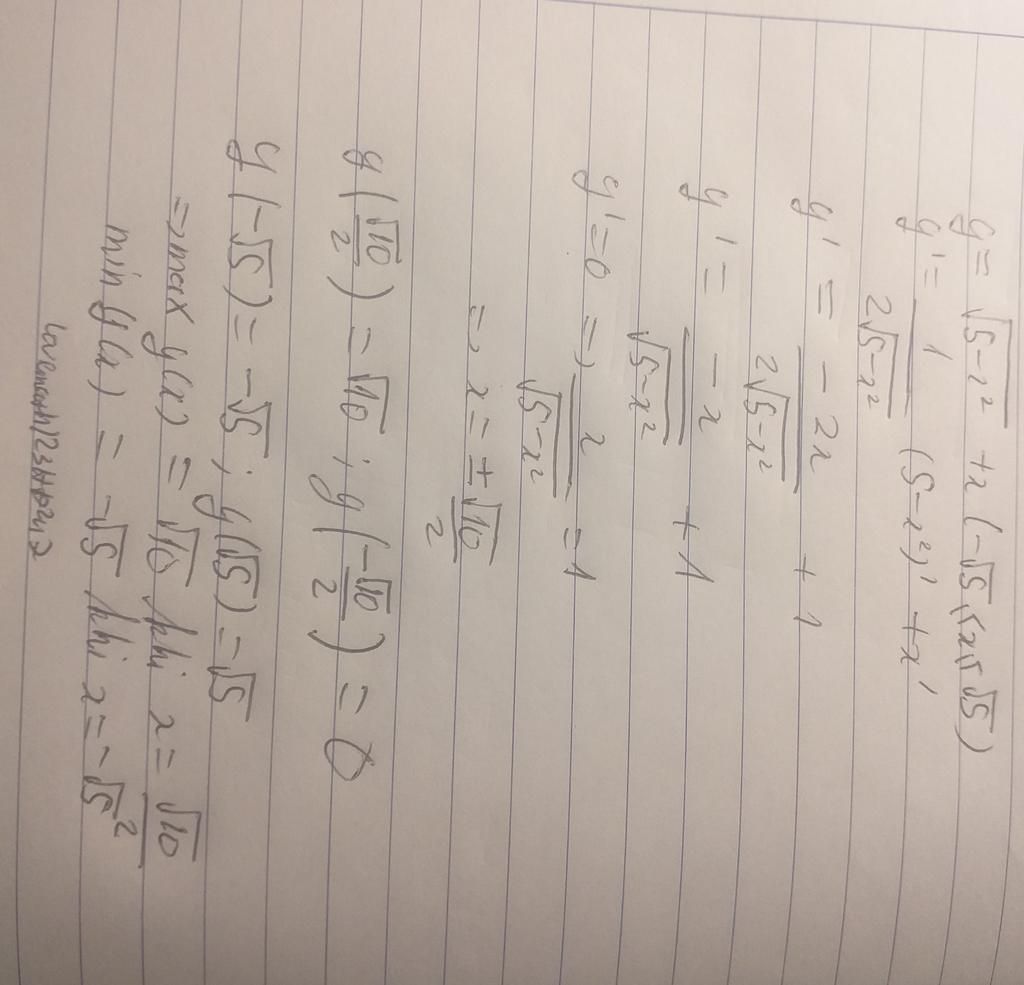 y = √(5-x²) + x (-√5 ≤ x ≤ √5)
y' = 1/(2√(5-x²)) (5-x²)' + x'
y' = -2x/(2√(5-x²)) + 1
y' = -x/√(5-x²) + 1
y' = 0 => x/√(5-x²) = 1
=> x = ±√10/2
y(√10/2) = √10 ; y(-√10/2) = 0
y(-√5) = -√5 ; y(√5) = √5
=> max y(x) = √10 khi x = √10/2
min y(x) = -√5 khi x = -√5